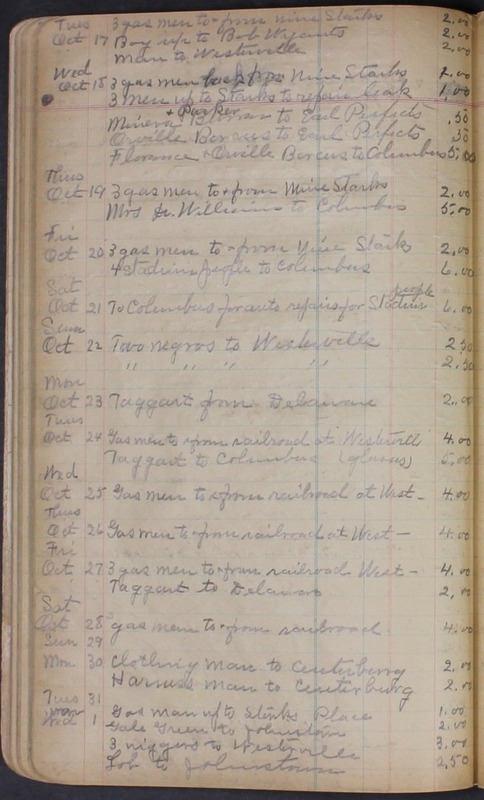 Tues 3 gas men to + from Nine Starks 2.00
Oct 17 Boy up to Bob Wyants 2.00
Man to Westerville 2.00
Wed
Oct 18 3 gas men back from Nine Starks 2.00
3 Men up to Starks to repair leak 1.00
+ Parker
Minerva to Earl Perfects .50
Orville Borcus to Earl Perfects .50
Florance + Orville Borcus to Columbus 5.00
Thus
Oct 19 3 gas men to + from Nine Starks 2.00
Mrs Dr. Williams to Columbus 5.00
Fri
Oct 20 3 gas men to + from Nine Starks 2.00
4 stadium people to Columbus 6.00
Sat
people
Oct 21 To Columbus for auto repairs for Stadium 6.00
Sun
Oct 22 Two negros to Westerville 2.50
" " " " 2.50
Mon
Oct 23 Taggart from Delaware 2.00
Tues
Oct 24 Gas men to + from railroad at Westerville 4.00
Taggart to Columbus (glasses) 5.00
Wed
Oct 25 Gas men to + from railroad at West - 4.00
Thus
Oct 26 Gas men to + from railroad at West - 4.00
Fri
Oct 27 3 gas men to + from railroad West - 4.00
Taggart to Delaware 2.00
Sat
Oct 28 gas men to + from railroad 4.00
Sun 29
Mon 30 Clothing man to Centerburg 2.00
Harness man to Centerburg 2.00
Tues 31
Nov
Wed 1 Gas man up to Starks Place 1.00
Gale Green to Johnstown 2.00
3 niggers to Westerville 3.00
to Johnstown 2.50